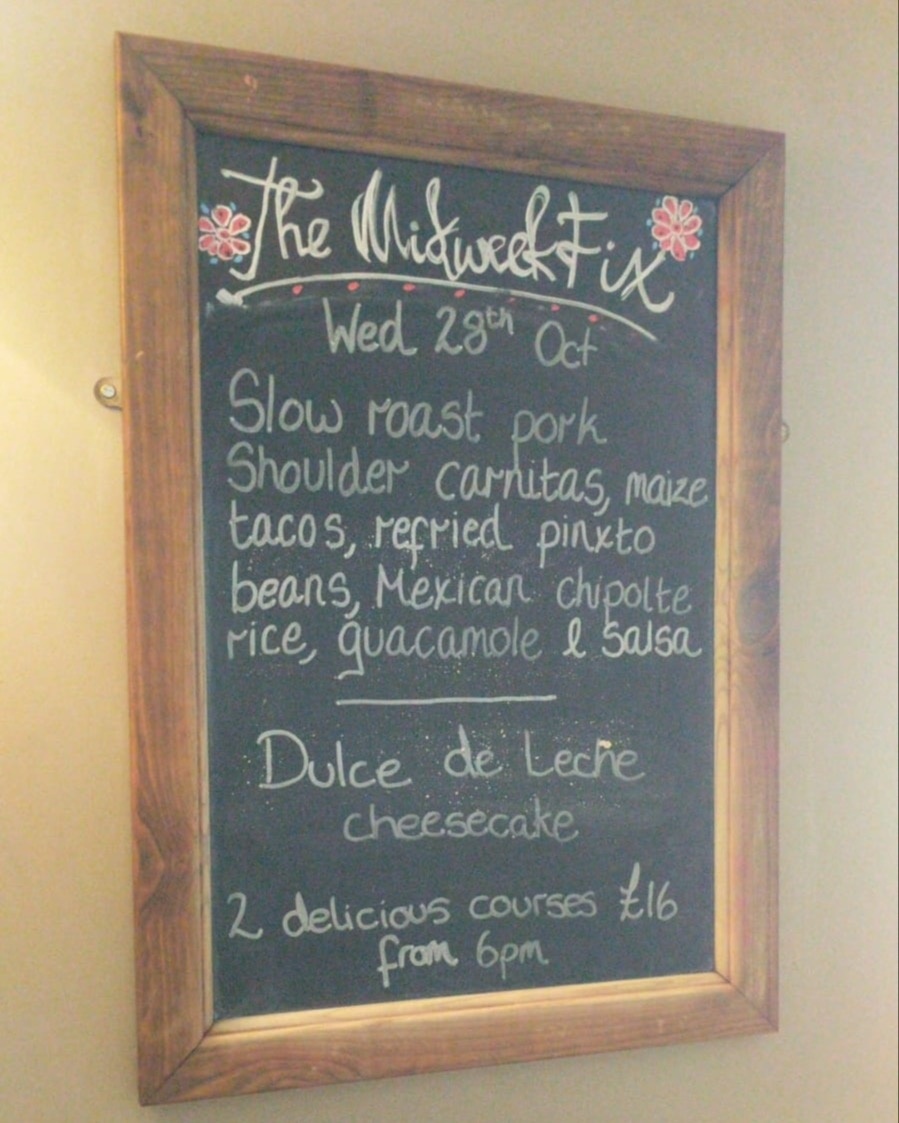 The Midweek Fix
Wed 28th Oct
Slow roast pork
Shoulder carnitas, maize
tacos, refried pinxto
beans, Mexican chipolte
rice, guacamole & Salsa
Dulce de Leche
cheesecake
2 delicious courses £16
from 6pm